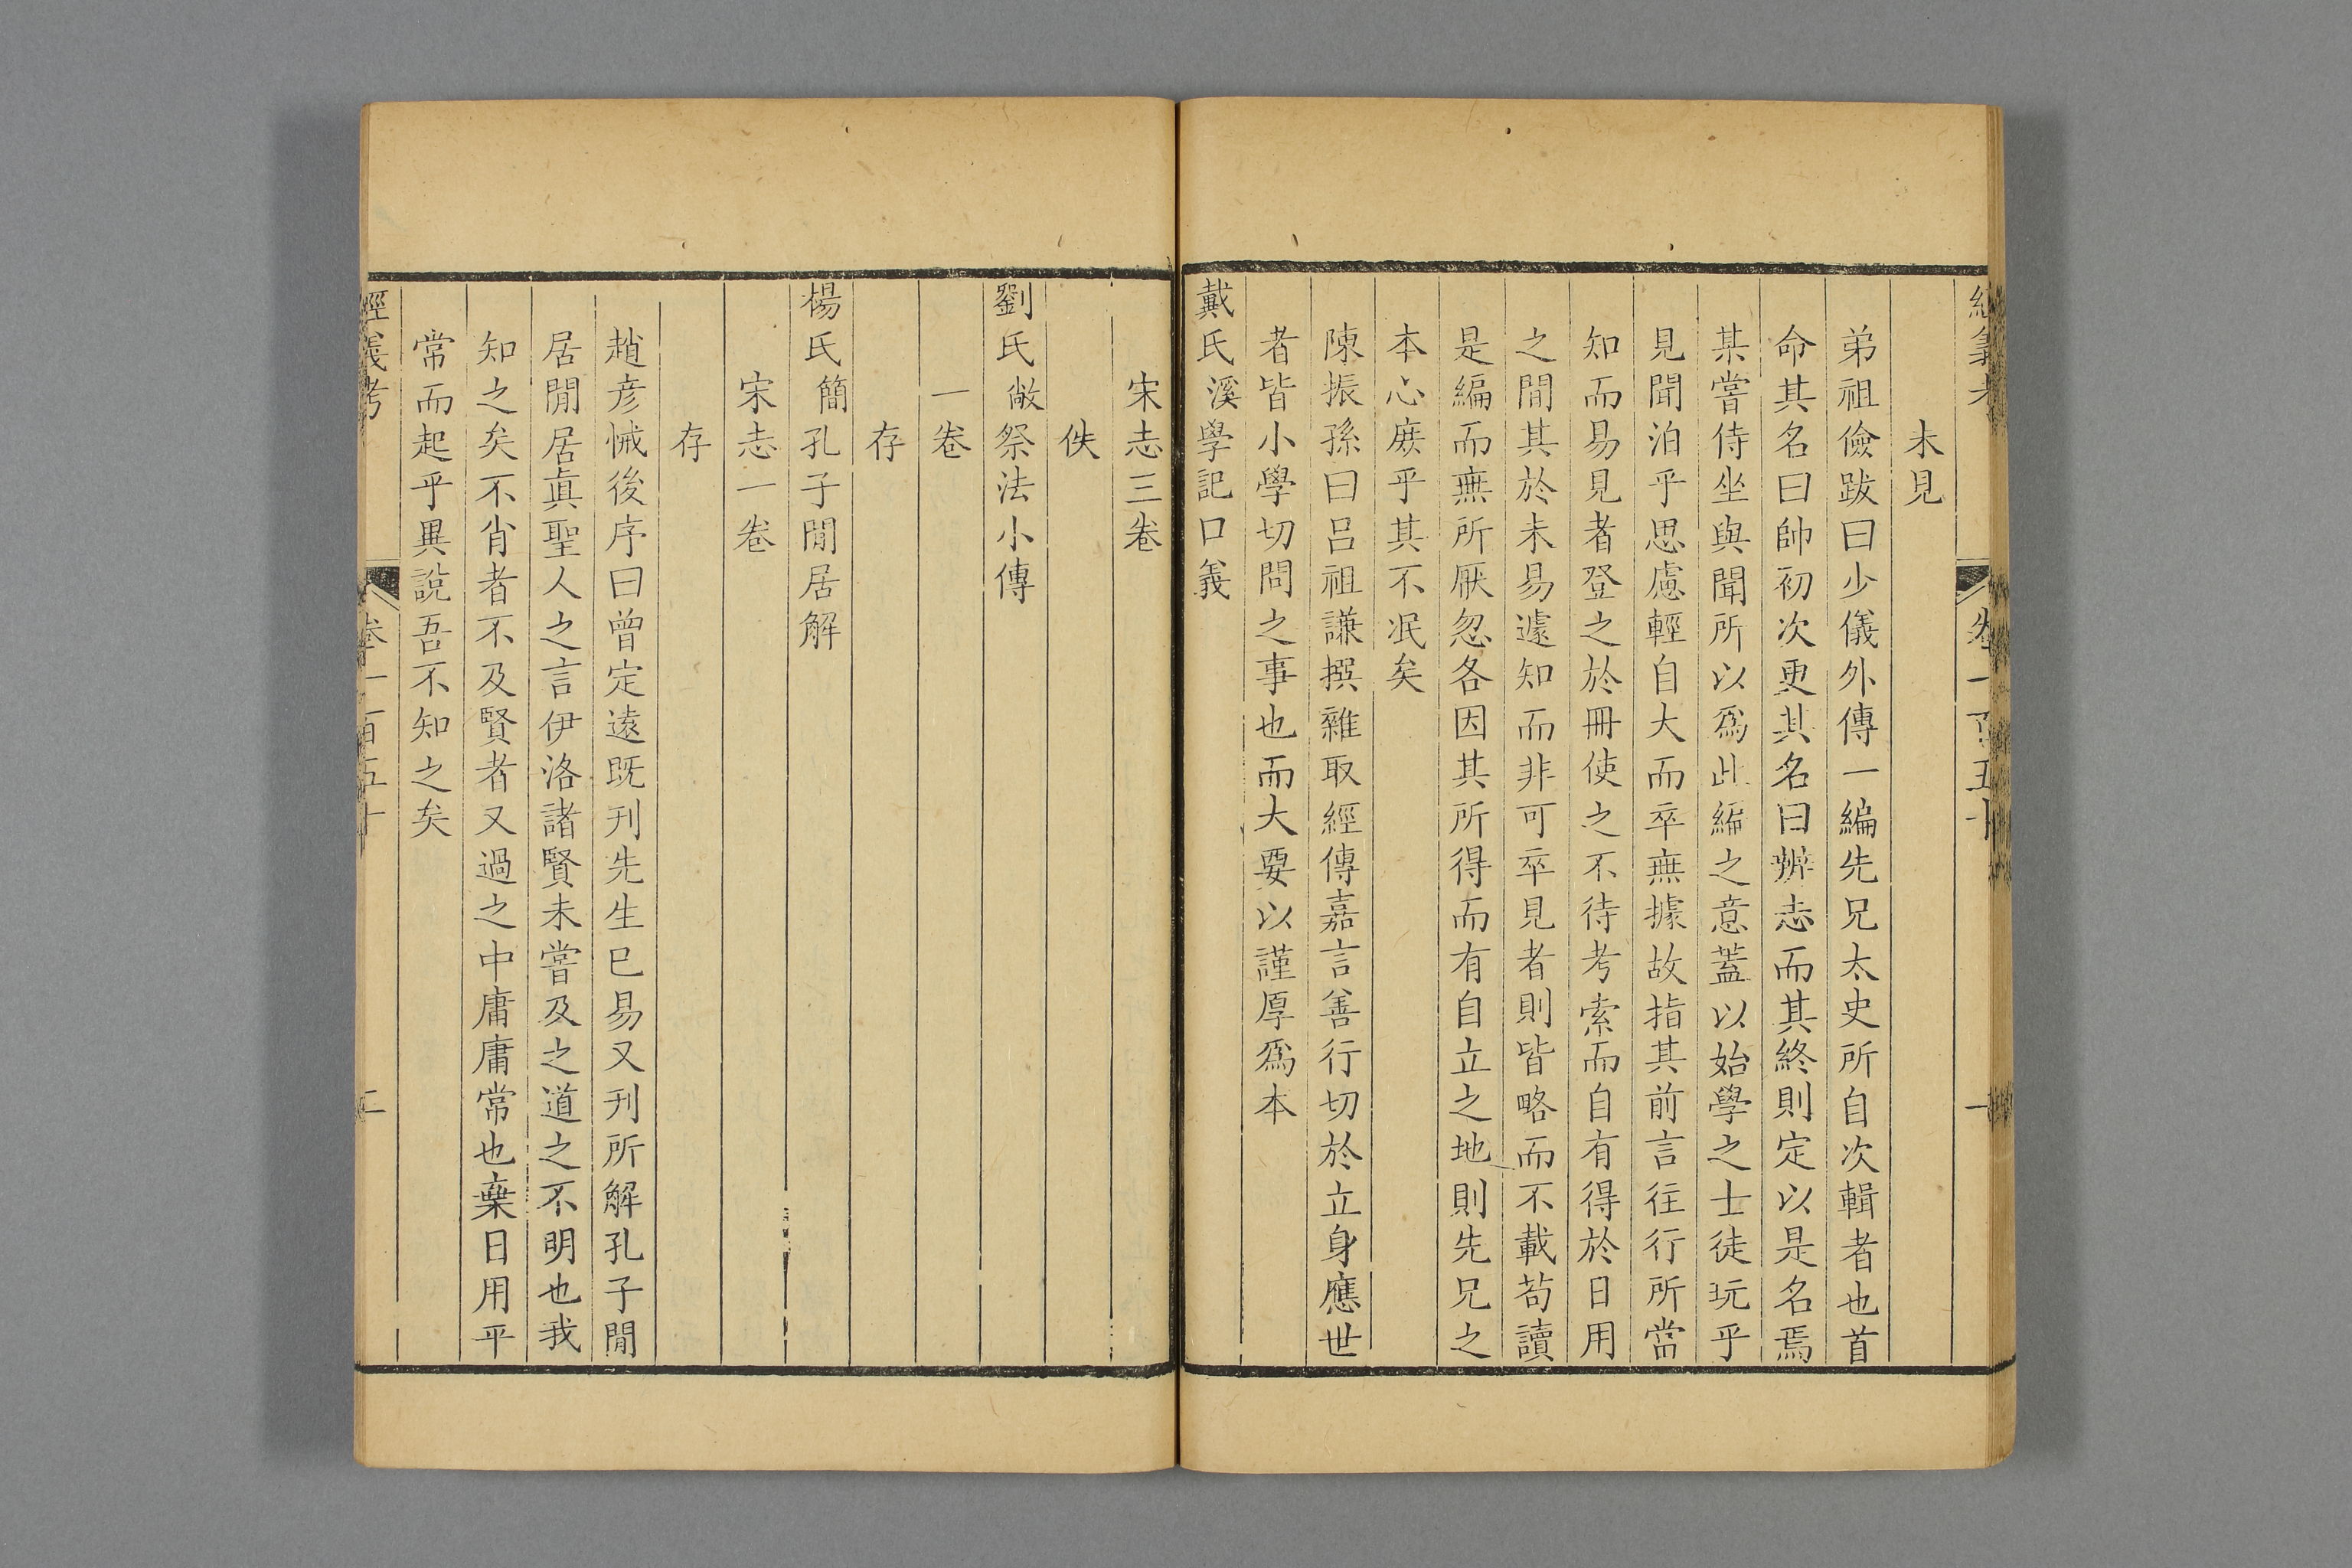 經義考
卷一百五十
一
未見
弟祖儉跋曰少儀外傳一編先兄太史所自次輯者也首
命其名曰帥初次更其名曰辨志而其終則定以是名焉
某嘗侍坐與聞所以爲此編之意蓋以始學之士徒玩乎
見聞泊乎思慮輕自大而卒無據故指其前言往行所當
知而易見者登之於冊使之不待考索而自有得於日用
之閒其於未易遽知而非可卒見者則皆略而不載苟讀
是編而無所厭忽各因其所得而有自立之地則先兄之
本心庶乎其不泯矣
陳振孫曰呂祖謙撰雜取經傳嘉言善行切於立身應世
者皆小學切問之事也而大要以謹厚爲本
戴氏溪學記口義
宋志三卷
佚
劉氏敞祭法小傳
一卷
存
楊氏簡孔子閒居解
宋志一卷
存
趙彥悈後序曰曾定遠既刊先生已易又刊所解孔子閒
居閒居眞聖人之言伊洛諸賢未嘗及之道之不明也我
知之矣不肖者不及賢者又過之中庸庸常也棄日用平
常而起乎異說吾不知之矣
經義考
卷一百五十
二